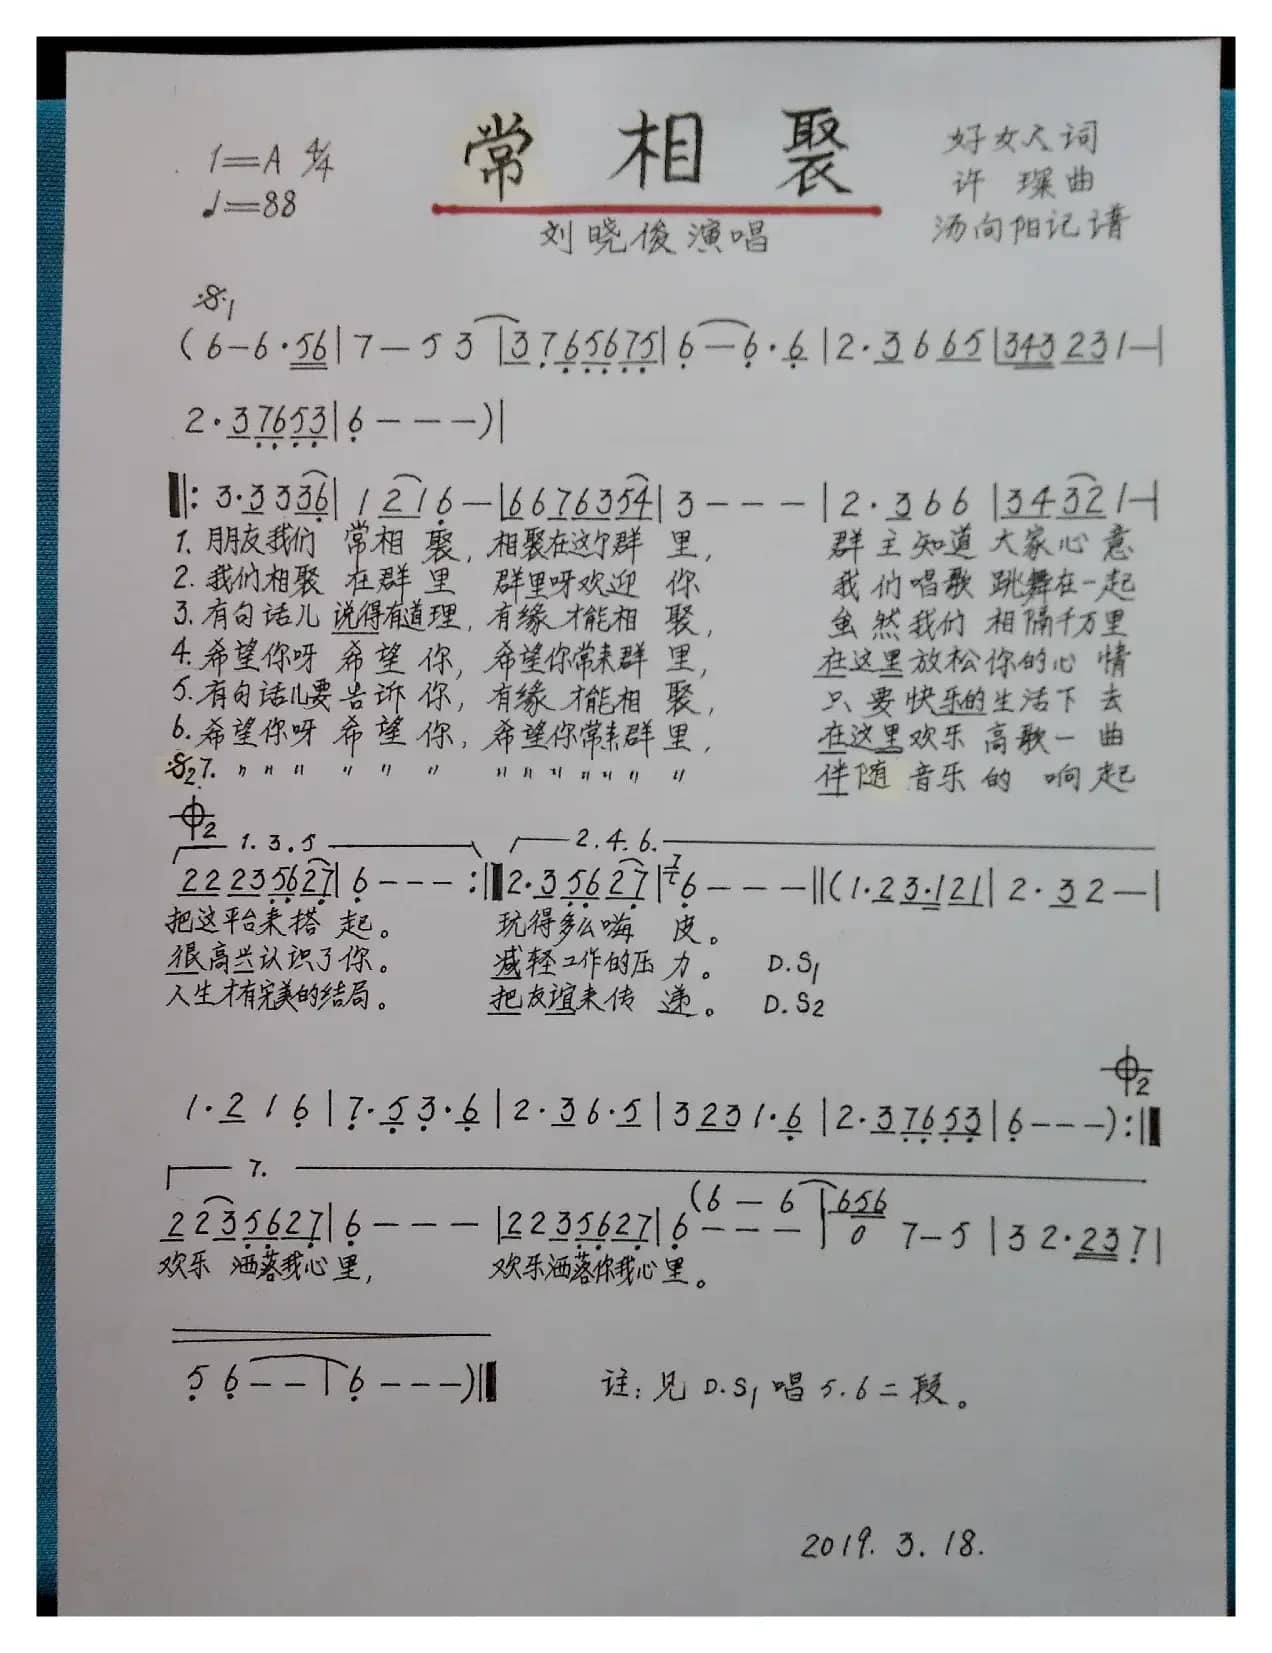 1=A 4/4
♩=88
常 相 聚
刘晓俊演唱
好女人词
许 琛曲
汤向阳记谱
𝄋1
(6—6·56|7—53|3765675|6—6·6|2·3665|343231—|
2·37653|6———)|
‖:3·3336|1216—|66763554|3———|2·366|34321—|
1. 朋友我们 常相 聚, 相聚在这个群 里, 群主知道 大家心 意
2. 我们相聚 在群 里 群里呀欢迎 你 我们唱歌 跳舞在一起
3. 有句话儿 说得有道理, 有缘才能相 聚, 虽然我们 相隔千万里
4. 希望你呀 希望 你, 希望你常来群 里, 在这里放松你的心 情
5. 有句话儿要 告诉 你, 有缘 才能相 聚, 只要快乐的生活下 去
6. 希望你呀 希望 你, 希望你常来群 里, 在这里欢乐 高歌一 曲
𝄋2 7. 〃 〃 〃 〃 〃 〃 〃 〃 〃 〃 〃 〃 〃 伴随 音乐 的 响起
𝄌2 1.3.5 2.4.6.
22235627|6———:‖2·35627|6———‖(1·23·121|2·32—|
把这平台来搭 起。 玩得多么嗨 皮。
很高兴认识了你。 减轻工作的压 力。 D.S1
人生才有完美的结局。 把友谊来传 递。 D.S2
𝄌2
1·216|7·53·6|2·36·5|3231·6|2·37653|6———):‖
7.
(6—6|656
2235627|6———|2235627|6———|0 7—5|32·237|
欢乐 洒落我心里, 欢乐洒落你我心里。
56——|6———)‖
注:见 D.S1 唱 5.6二段。
2019. 3. 18.